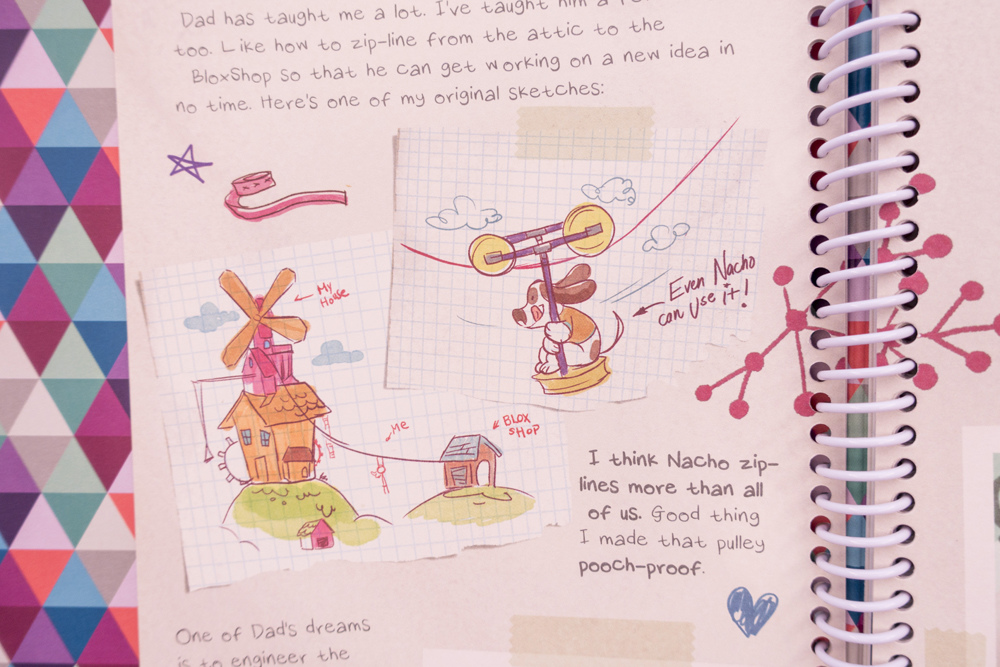 Dad has taught me a lot. I've taught him a few
too. Like how to zip-line from the attic to the
BloxShop so that he can get working on a new idea in
no time. Here's one of my original sketches:
Even Nacho
can use it!
My
House
Me
BLOX
SHOP
I think Nacho zip-
lines more than all
of us. Good thing
I made that pulley
pooch-proof.
One of Dad's dreams
is to engineer the